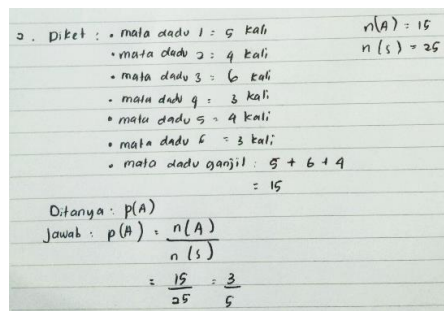 2. Diket : • mata dadu 1 = 5 kali
n(A) = 15
• mata dadu 2 = 4 kali
n(s) = 25
• mata dadu 3 = 6 kali
• mata dadu 4 = 3 kali
• mata dadu 5 = 4 kali
• mata dadu 6 = 3 kali
• mata dadu ganjil : 5 + 6 + 4
= 15
Ditanya : p(A)
Jawab : p(A) = n(A) / n(s)
= 15/25 = 3/5